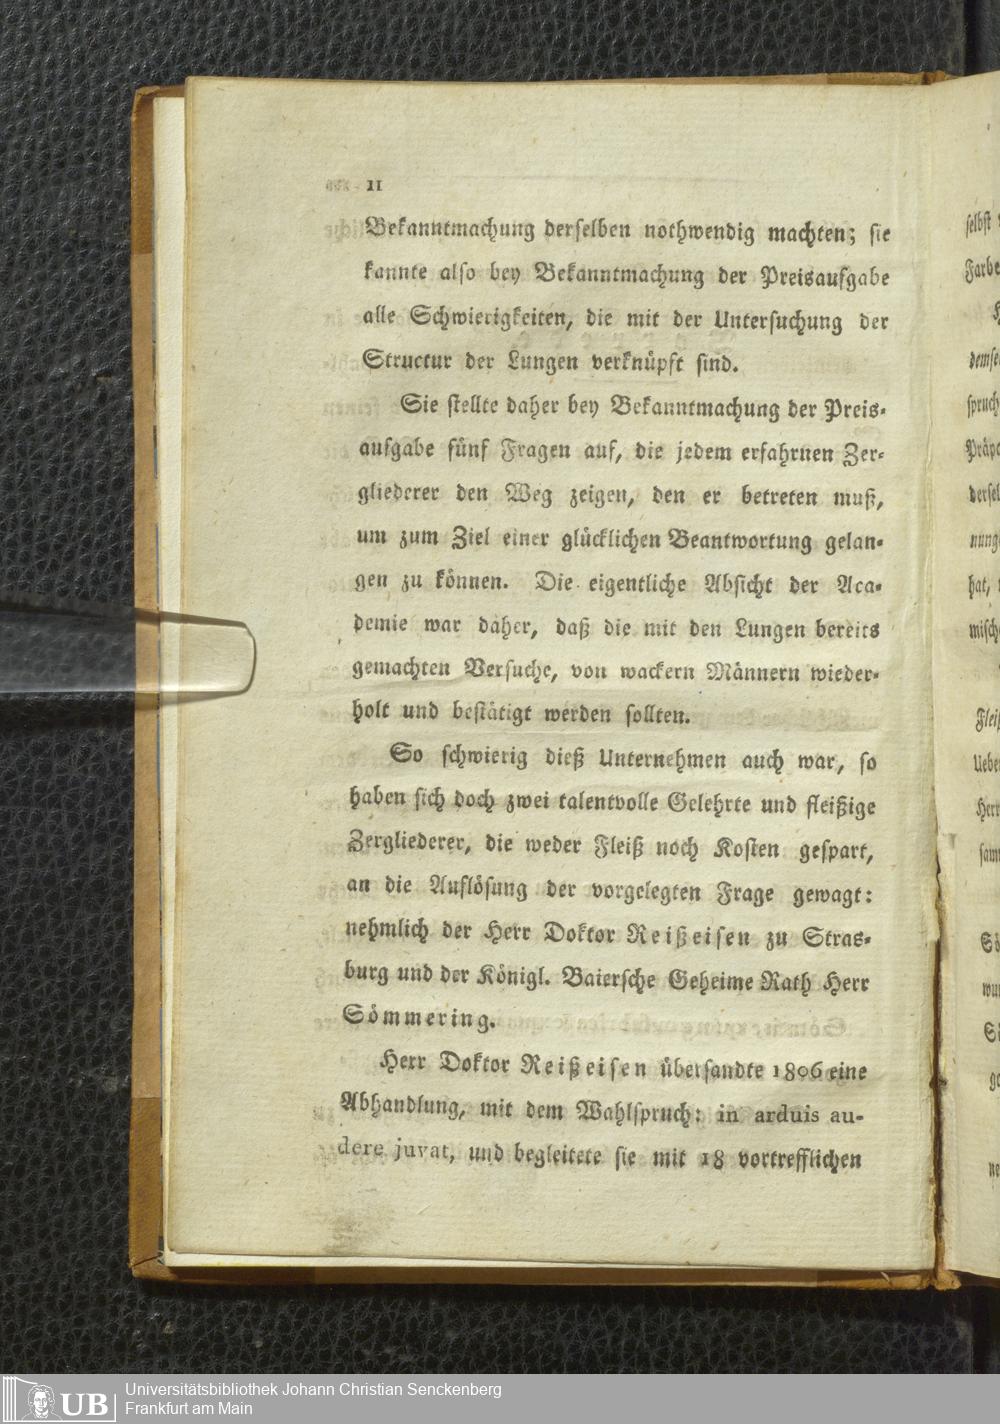 II
Bekanntmachung derselben nothwendig machten; sie
kannte also bey Bekanntmachung der Preisaufgabe
alle Schwierigkeiten, die mit der Untersuchung der
Structur der Lungen verknüpft sind.
Sie stellte daher bey Bekanntmachung der Preis-
aufgabe fünf Fragen auf, die jedem erfahrnen Zer-
gliederer den Weg zeigen, den er betreten muß,
um zum Ziel einer glücklichen Beantwortung gelan-
gen zu können. Die eigentliche Absicht der Aca-
demie war daher, daß die mit den Lungen bereits
gemachten Versuche, von wackern Männern wieder-
holt und bestätigt werden sollten.
So schwierig dieß Unternehmen auch war, so
haben sich doch zwei talentvolle Gelehrte und fleißige
Zergliederer, die weder Fleiß noch Kosten gespart,
an die Auflösung der vorgelegten Frage gewagt:
nehmlich der Herr Doktor Reißeisen zu Stras-
burg und der Königl. Baiersche Geheime Rath Herr
Sömmering.
Herr Doktor Reißeisen übersandte 1806 eine
Abhandlung, mit dem Wahlspruch: in arduis au-
dere juvat, und begleitete sie mit 18 vortrefflichen
selbst
Farbe
demse
spruch
Präpa
dersel
nung
hat,
misch
Fleiß
Uebe
Herr
samm
Sö
wur
Sö
ge
ne
UB
Universitätsbibliothek Johann Christian Senckenberg
Frankfurt am Main